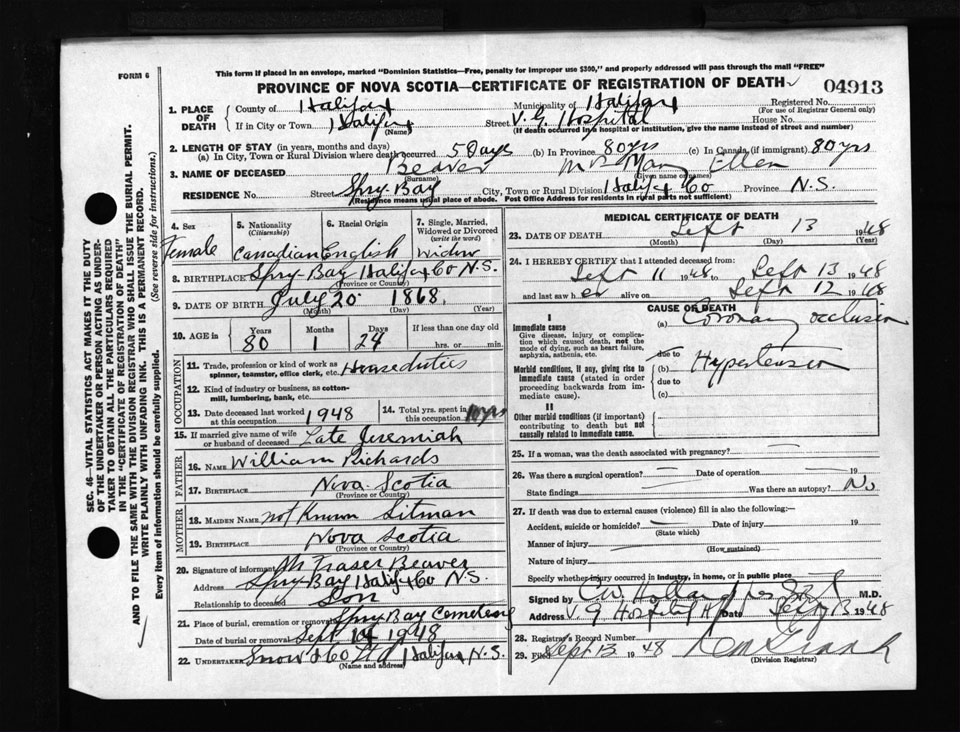 FORM 6
This form if placed in an envelope, marked "Dominion Statistics—Free, penalty for improper use $300," and properly addressed will pass through the mail "FREE"
PROVINCE OF NOVA SCOTIA—CERTIFICATE OF REGISTRATION OF DEATH 04913
1. PLACE OF DEATH
County of Halifax Municipality of Halifax Registered No.
(For use of Registrar General only)
If in City or Town Halifax (Name) Street V.G. Hospital House No.
(If death occurred in a hospital or institution, give the name instead of street and number)
2. LENGTH OF STAY (in years, months and days)
(a) In City, Town or Rural Division where death occurred 5 Days (b) In Province 80 yrs (c) In Canada (if immigrant) 80 yrs
3. NAME OF DECEASED Beaver Mrs Mary Ellen
(Surname) (Given name or names)
RESIDENCE No. Street Spry Bay City, Town or Rural Division Halifax Co Province N.S.
(Residence means usual place of abode. Post Office Address for residents in rural parts not sufficient)
4. Sex Female
5. Nationality (Citizenship) Canadian
6. Racial Origin English
7. Single, Married, Widowed or Divorced (write the word) Widow
8. BIRTHPLACE Spry Bay Halifax Co N.S.
(Province or Country)
9. DATE OF BIRTH July 20 1868
(Month) (Day) (Year)
10. AGE in Years 80 Months 1 Days 24 If less than one day old hrs. or min.
OCCUPATION
11. Trade, profession or kind of work as spinner, teamster, office clerk, etc. House duties
12. Kind of industry or business, as cotton-mill, lumbering, bank, etc.
13. Date deceased last worked at this occupation 1948
14. Total yrs. spent in this occupation
15. If married give name of wife or husband of deceased Late Jeremiah
FATHER
16. Name William Richards
17. BIRTHPLACE Nova Scotia
(Province or Country)
MOTHER
18. MAIDEN NAME not Known Sitman
19. BIRTHPLACE Nova Scotia
(Province or Country)
20. Signature of informant M Fraser Beaver
Address Spry Bay Halifax Co N.S.
Relationship to deceased Son
21. Place of burial, cremation or removal Spry Bay Cemetery
Date of burial or removal Sept 1948
22. UNDERTAKER Snow & Co Ltd Halifax N.S.
(Name and address)
MEDICAL CERTIFICATE OF DEATH
23. DATE OF DEATH Sept 13 1948
(Month) (Day) (Year)
24. I HEREBY CERTIFY that I attended deceased from:
Sept 11 1948 to Sept 13 1948
and last saw her alive on Sept 12 1948
CAUSE OF DEATH
I
Immediate cause
Give disease, injury or complication which caused death, not the mode of dying, such as heart failure, asphyxia, asthenia, etc.
(a) Coronary occlusion
due to
Morbid conditions, if any, giving rise to immediate cause (stated in order proceeding backwards from immediate cause).
(b) Hypertension
due to
(c)
II
Other morbid conditions (if important) contributing to death but not causally related to immediate cause.
25. If a woman, was the death associated with pregnancy?
26. Was there a surgical operation? Date of operation 19
State findings Was there an autopsy? No
27. If death was due to external causes (violence) fill in also the following:—
Accident, suicide or homicide? Date of injury 19
(State which)
Manner of injury
(How sustained)
Nature of injury
Specify whether injury occurred in industry, in home, or in public place
Signed by C.W. Holland M.D.
Address V.G Hospital Date Sept 13 1948
28. Registrar's Record Number
29. Filed Sept 13 1948
(Division Registrar)
SEC. 46—VITAL STATISTICS ACT MAKES IT THE DUTY
OF THE UNDERTAKER OR PERSON ACTING AS UNDERTAKER TO OBTAIN ALL THE PARTICULARS REQUIRED
IN THE "CERTIFICATE OF REGISTRATION OF DEATH"
AND TO FILE THE SAME WITH THE DIVISION REGISTRAR WHO SHALL ISSUE THE BURIAL PERMIT.
WRITE PLAINLY WITH UNFADING INK. THIS IS A PERMANENT RECORD.
Every item of information should be carefully supplied. (See reverse side for instructions.)